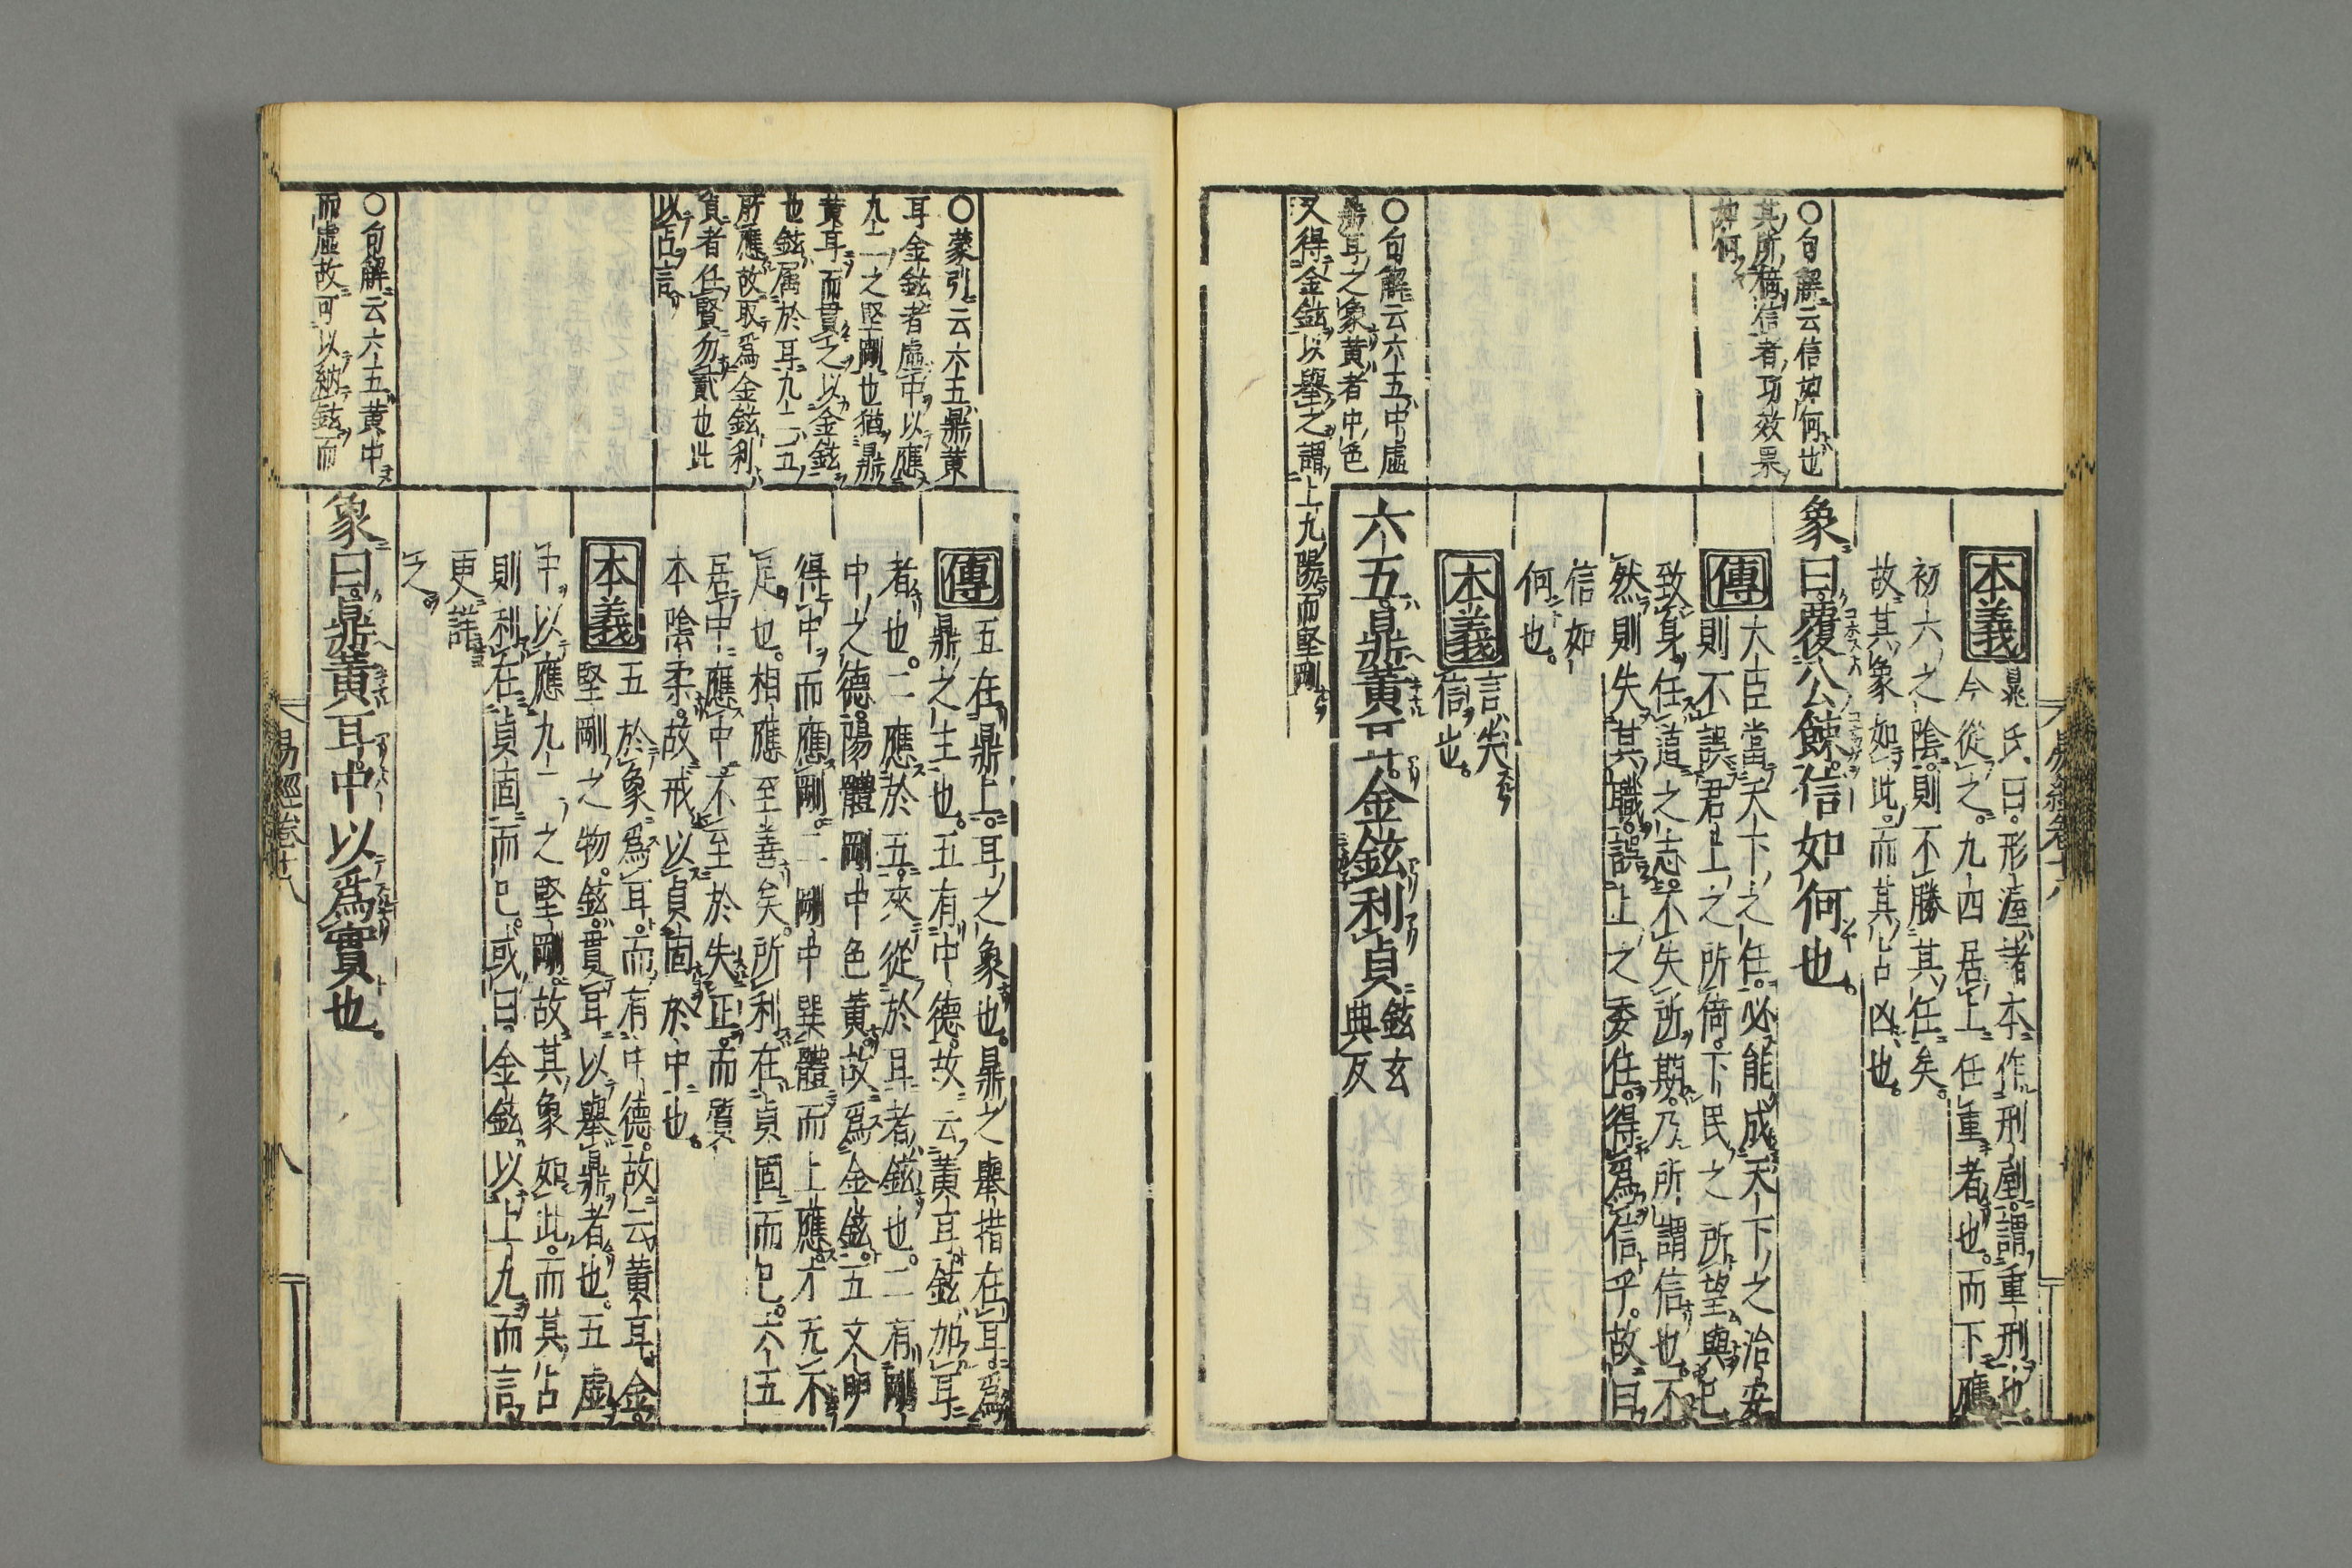 本義 晁氏曰。形渥諸本作刑剭。謂重刑也。
今從之。九四居上任重者也。而下應
初六之陰。則不勝其任矣。
故其象如此。而其占凶也。
象曰。覆公餗。信如何也。
傳 大臣當天下之任。必能成天下之治安
則不誤君上之所倚。下民之所望與己
致身任道之志。不失所期。乃所謂信也。不
然則失其職。誤上之委任。得爲信乎。故曰
信如
何也。
本義 言失
信也。
六五。鼎黃耳。金鉉。利貞 鉉玄
典反
〇句解云信如何也
其所構信者功效果
如何
〇句解云六五中虛
鼎耳之象黃者中色
又得金鉉以舉之謂上九陽而堅剛
易經卷十八
傳 五在鼎上。耳之象也。鼎之舉措在耳。爲
鼎之主也。五有中德。故云黃耳。鉉加耳
者也。二應於五。來從於耳者。鉉也。二有剛
中之德。陽體剛中色黃。故爲金鉉。五文明
得中。而應剛。二剛中巽體而上應。才无不
足也。相應至善矣。所利在貞固而已。六五
居中應中。不至於失正。而質
本陰柔。故戒以貞固於中也。
本義 五於象爲耳。而有中德。故云黃耳。金。
堅剛之物。鉉。貫耳以舉鼎者也。五虛
中。以應九二之堅剛。故其象如此。而其占
則利在貞固而已。或曰。金鉉以上九而言。
更詳
之。
象曰。鼎黃耳。中以爲實也。
〇蒙引云六五鼎黃
耳金鉉者虛中以應
九二之堅剛也猶鼎
黃耳而貫之以金鉉
也鉉属於耳九二五
所應故取爲金鉉利
貞者任賢勿貳也此
以占言
〇句解云六五黃中
而虛故可以納鉉而
易經卷十八
八